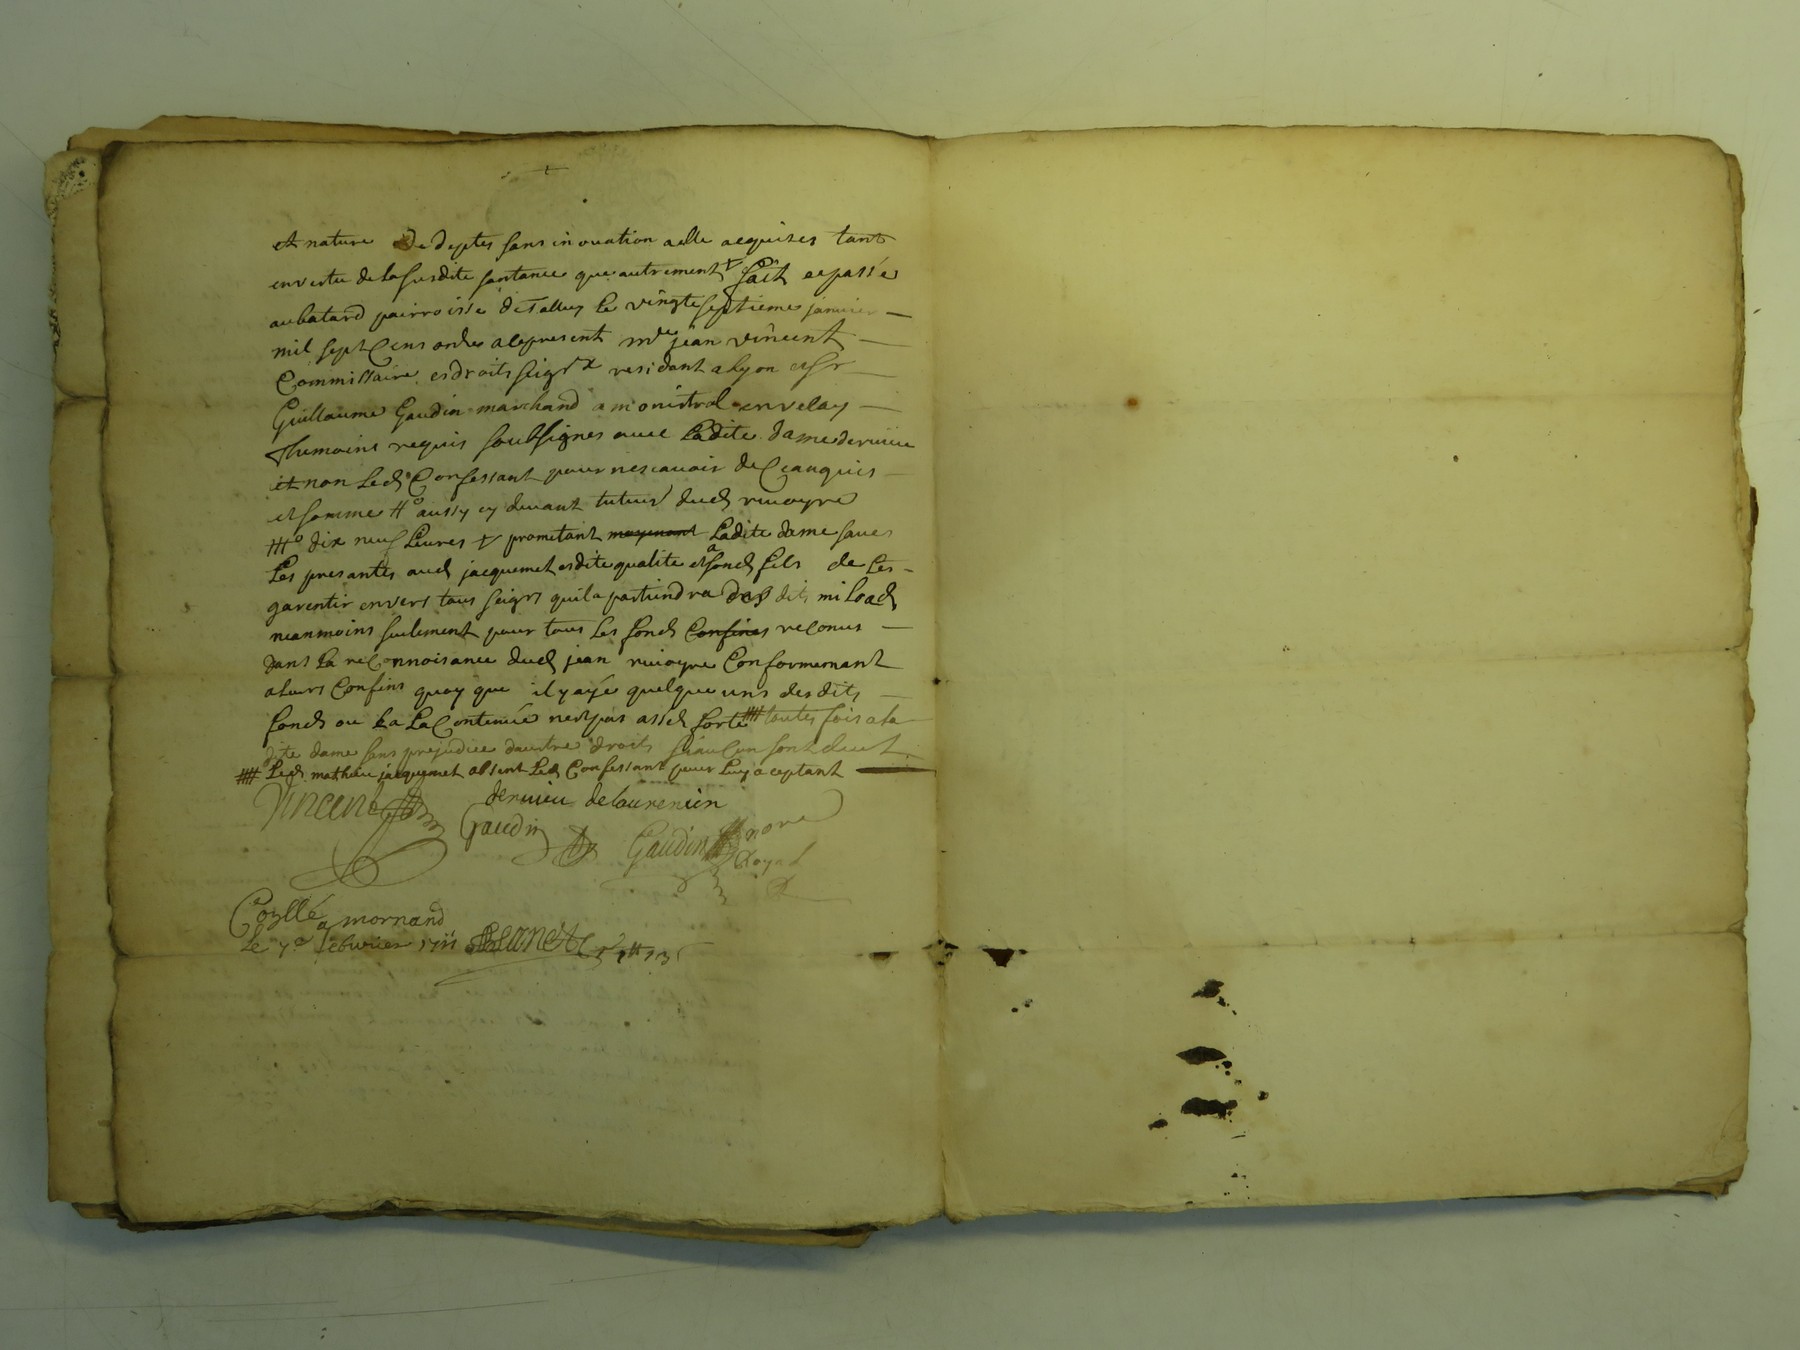 et nature de deptes sans inouation a elle acquises tant
en vertu de la susdite santance que autrement fait et passé
au batard pairroisse de Talluy le vingt septieme janvier
mil sept Cens onze a ce present me jean vincent
Commissaire es droits seigrx residant a Lyon et sr
Guillaume Gaudin marchand a monistrol en velay
Themoins requis soubsignes avec Ladite dame dervieu
et non Led Confessant pour ne scavoir de Ce enquis
et somme # aussy cy devant tuteur dud rivoyre
### dix neuf Livres prometant moyenant Ladite dame
Les presantes aud jacquemet esdite qualite et a sond fils de Les
garentir envers tous seigrs quil apartiendra desdits mi Lods
neanmoins seulement pour tous Les fonds Confines reconus
dans La reconnoisance dud jean rivoyre Conformemant
a Leurs Confins quoy que il y aye quelque uns desdits
fonds ou La La Contenue nest pas assés forte #### toutes fois a la
dite dame sans prejudice dautre droits si aucun sont deut
#### Led mathieu jacquemet absent Led Confessant pour Luy aceptant
Vincent dervieu delaurencin
Gaudin Gaudin nore
Royal
Coñllé a mornand
Le 7e febvrier 1711